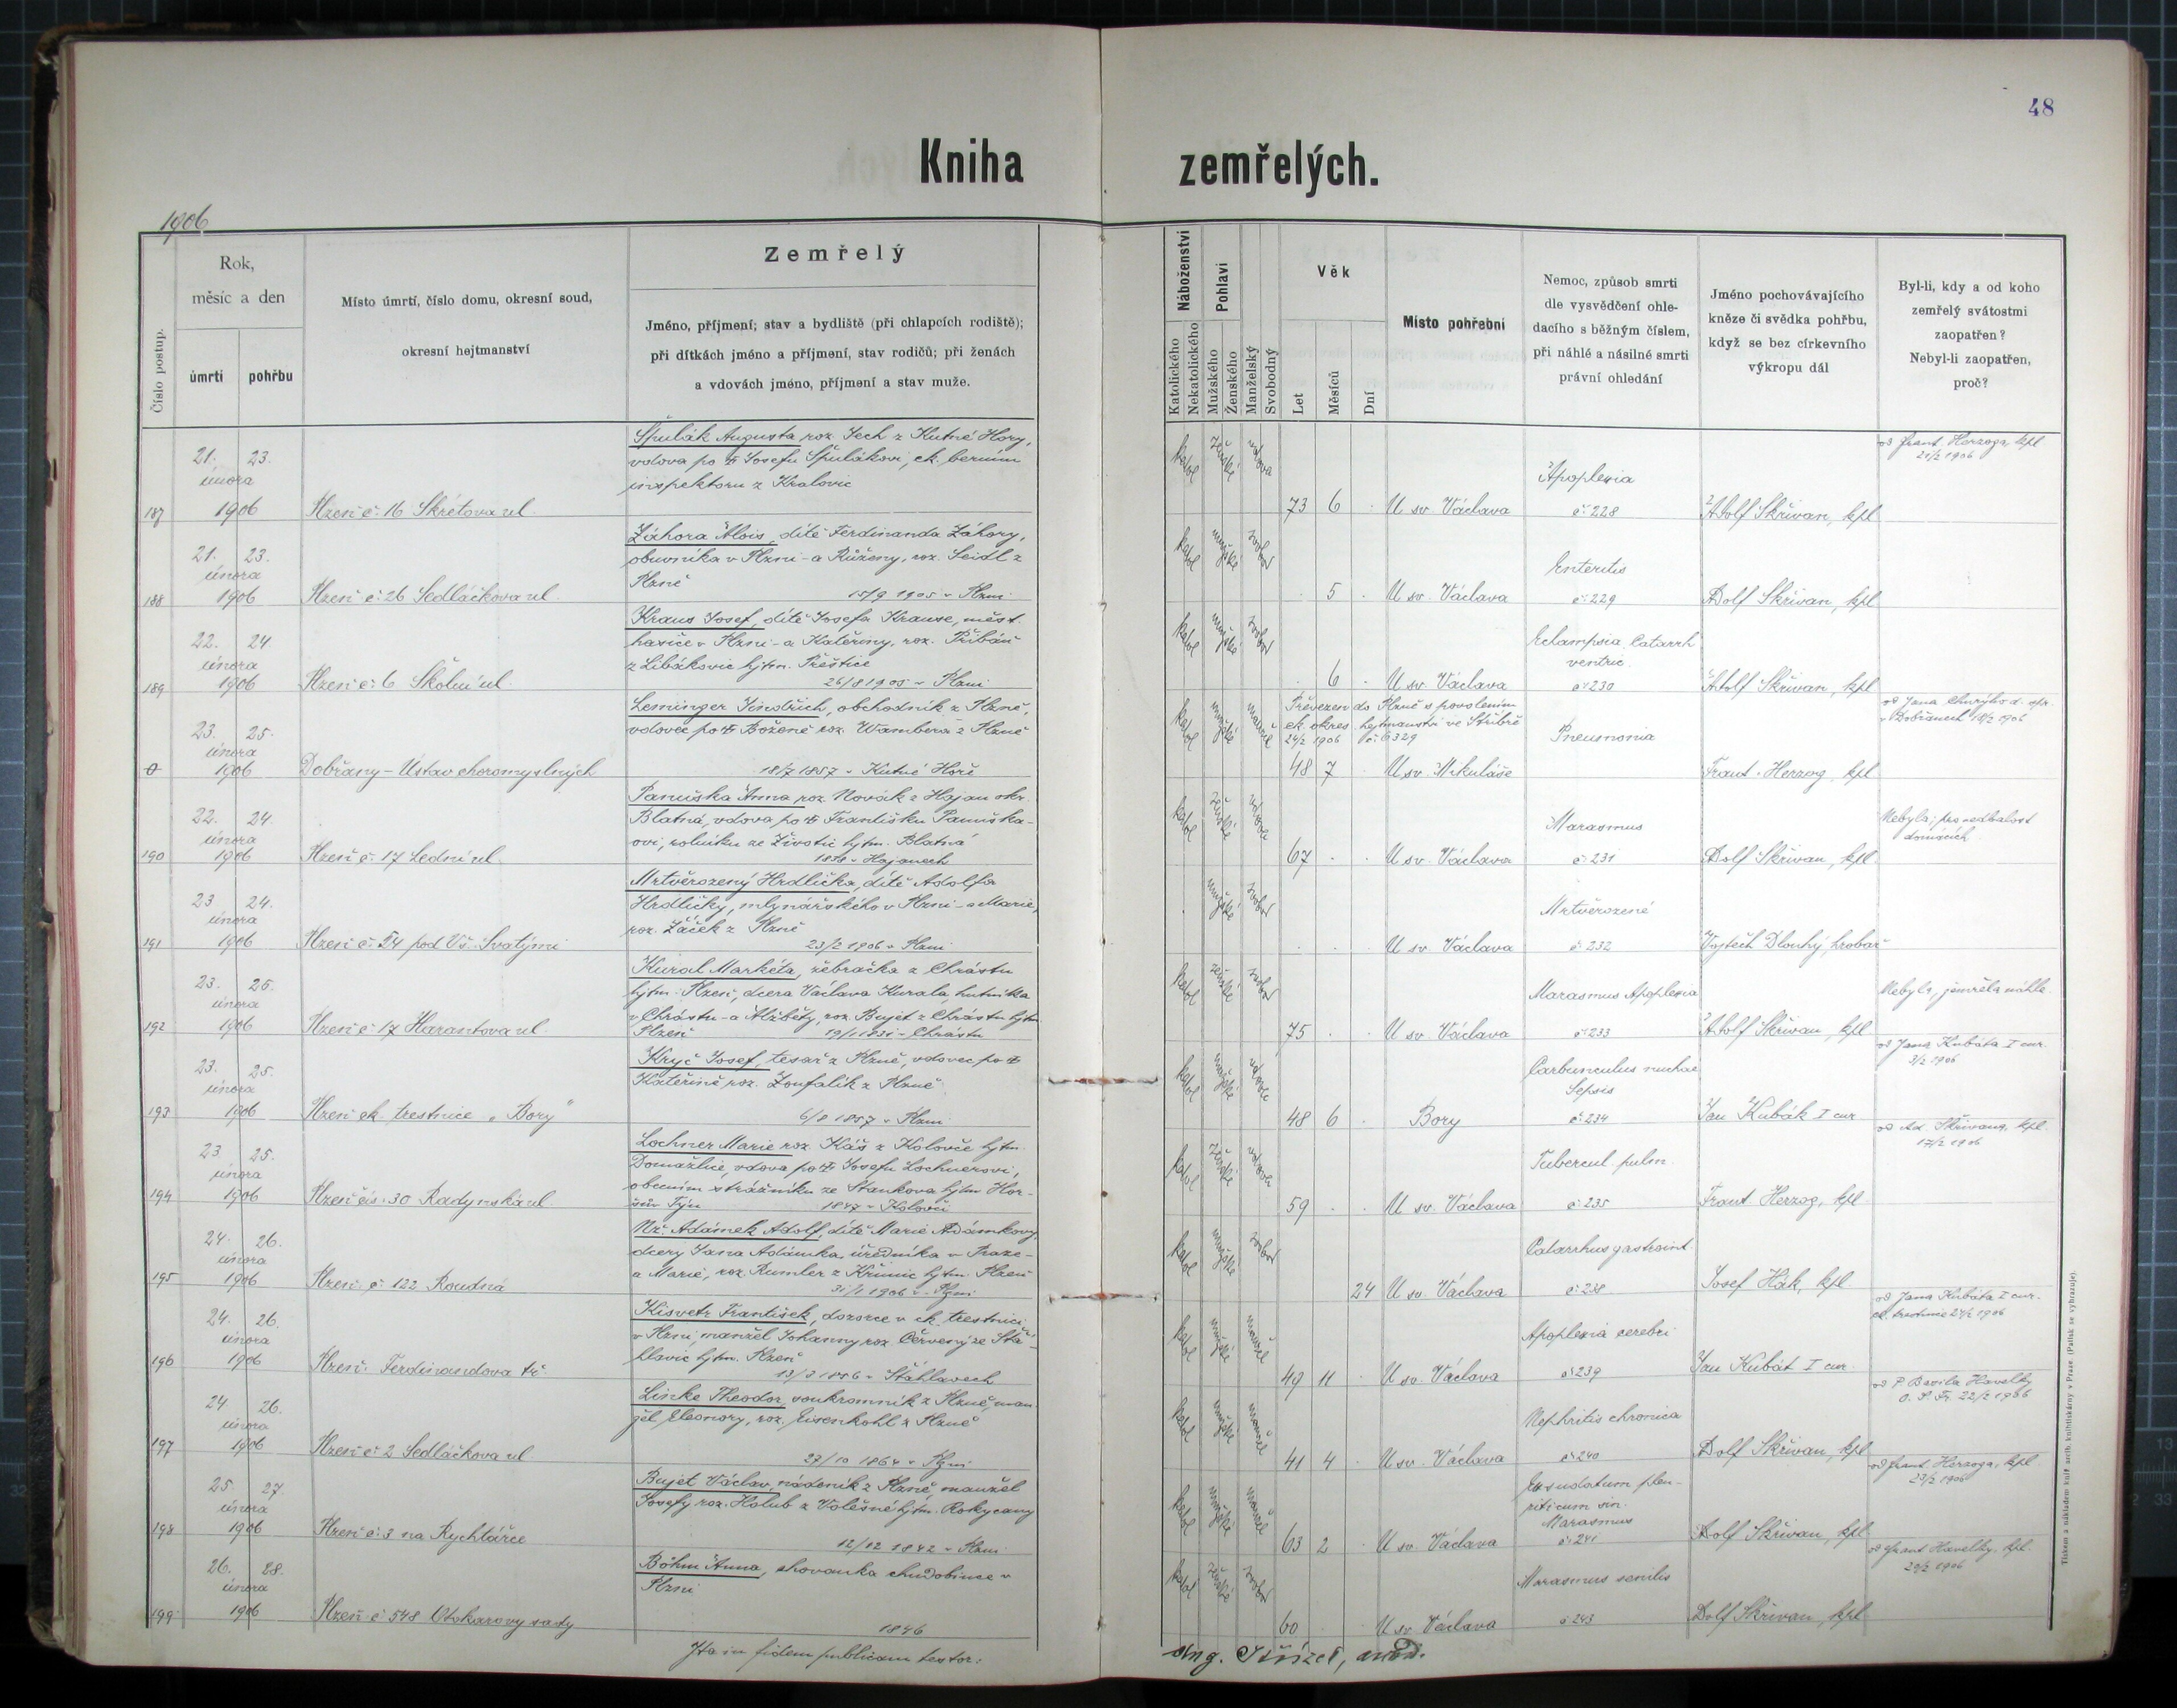 48
Kniha zemřelých.
1906
Číslo postup.
Rok,
měsíc a den
úmrtí
pohřbu
Místo úmrtí, číslo domu, okresní soud,
okresní hejtmanství
Zemřelý
Jméno, příjmení; stav a bydliště (při chlapcích rodiště);
při dítkách jméno a příjmení, stav rodičů; při ženách
a vdovách jméno, příjmení a stav muže.
Náboženství
Katolického
Nekatolického
Pohlaví
Mužského
Ženského
Manželský
Svobodný
Věk
Let
Měsíců
Dní
Místo pohřební
Nemoc, způsob smrti
dle vysvědčení ohle-
dacího s běžným číslem,
při náhlé a násilné smrti
právní ohledání
Jméno pochovávajícího
kněze či svědka pohřbu,
když se bez církevního
výkropu dál
Byl-li, kdy a od koho
zemřelý svátostmi
zaopatřen?
Nebyl-li zaopatřen,
proč?
187
21. 23.
února
1906
Plzeň č. 16 Skrétova ul.
Špulák Augusta roz. Jech z Kutné Hory,
vdova po † Josefu Špulákovi, ck. berním
inspektoru z Kralovic
katol ženské vdova
73 6
U sv. Václava
Apoplexia
č. 228
Adolf Skřivan, kpl
od Frant. Herzoga, kpl
21/2 1906
188
21. 23.
února
1906
Plzeň č. 26 Sedláčkova ul.
Záhora Alois, dítě Ferdinanda Záhory,
obuvníka v Plzni a Růženy, roz. Seidl z
Plzně
15/9 1905 v Plzni
katol mužské svobod
5
U sv. Václava
Enteritis
č. 229
Adolf Skřivan, kpl
189
22. 24
února
1906
Plzeň č. 6 Školní ul.
Kraus Josef, dítě Josefa Krause, měst.
hasiče v Plzni a Kateřiny, roz. Přibáň
z Libákovic hjtm. Přeštice
26/8 1905 v Plzni
katol mužské svobod
6
U sv. Václava
Eclampsia Catarrh
ventric.
č. 230
Adolf Skřivan, kpl
0
23. 25.
února
1906
Dobřany - Ústav choromyslných
Leminger Jindřich, obchodník z Plzně,
vdovec po † Boženě roz. Wambera z Plzně
18/7 1857 v Kutné Hoře
katol mužské
Převezen do Plzně s povolením
ck. okres. hejtmanství ve Stříbře
24/2 1906 č. 6329
48 7
U sv. Mikuláše
Pneumonia
Frant. Herzog, kpl
18/2 1906
190
22. 24.
února
1906
Plzeň č. 17 Lední ul.
Panuška Anna roz. Novák z Hajan okr.
Blatná, vdova po † Františku Panuško-
ovi, rolníku ze Životic hjtm. Blatná
v Hajanech
katol ženské
67
U sv. Václava
Marasmus
č. 231
Adolf Skřivan, kpl
Nebyla, pro nedbalost
domácích
191
23 24.
února
1906
Plzeň č. 54 pod Vš. Svatými
Mrtvěrozený Hrdlička, dítě Adolfa
Hrdličky, mlynářského v Plzni a Marie,
roz. Žáček z Plzně
23/2 1906 v Plzni
mužské svobod
U sv. Václava
Mrtvěrozené
č. 232
Vojtěch Dlouhý, hrobař
192
23. 25.
února
1906
Plzeň č. 17 Harantova ul.
Kural Markéta, žebračka z Chrástu
hjtm. Plzeň, dcera Václava Kurala, hutníka
v Chrástu a Alžběty, roz. Bujet z Chrástu hjtm
Plzeň
19/1 1831 v Chrástu
katol ženské svobod
75
U sv. Václava
Marasmus Apoplexia
č. 233
Adolf Skřivan, kpl
Nebyla, zemřela náhle
193
23. 25.
února
1906
Plzeň ck. trestnice "Bory"
Kryč Josef, tesař z Plzně, vdovec po †
Kateřině roz. Zoufalík z Plzně
6/8 1857 v Plzni
katol mužské vdovec
48 6
Bory
Carbunculus nuchae
Sepsis
č. 234
Jan Kubát I cur.
od Jana Kubáta I cur.
3/2 1906
194
23. 25.
února
1906
Plzeň čís. 30 Radynská ul.
Lochner Marie roz. Káš z Kolovče hjtm.
Domažlice, vdova po † Josefu Lochnerovi,
obecním strážníku ze Staňkova hjtm Hor-
šův Týn
1847 v Kolovči
katol ženské
59
U sv. Václava
Tubercul. pulm.
č. 235
Frant Herzog, kpl
od Ad. Skřivana, kpl.
17/2 1906
195
24. 26.
února
1906
Plzeň č. 122 Roudná
Nž. Adámek Adolf, dítě Marie Adámkovy,
dcery Jana Adámka, úředníka v Praze
a Marie, roz. Rumler z Křimic hjtm. Plzeň
31/1 1906 v Plzni
katol mužské svobod
24
U sv. Václava
Catarrhus gastroint.
č. 238
Josef Hák, kpl
196
24. 26.
února
1906
Plzeň. Ferdinandova tř.
Kisvetr František, dozorce v ck. trestnici
v Plzni, manžel Johanny roz. Červený ze Šťá-
hlavic hjtm. Plzeň
13/3 1856 v Šťáhlavech
katol mužské
49 11
U sv. Václava
Apoplexia cerebri
č. 239
Jan Kubát I cur.
od Jana Kubáta I cur.
ck. trestnice 24/2 1906
197
24. 26.
února
1906
Plzeň č. 2 Sedláčkova ul.
Linke Theodor, soukromník z Plzně, man-
žel Eleonory, roz. Eisenkohl z Plzně
27/10 1864 v Plzni
katol mužské
41 4
U sv. Václava
Nephritis chronica
č. 240
Adolf Skřivan, kpl
od P. Basila Havelky
O. S. Fr. 22/2 1906
198
25. 27.
února
1906
Plzeň č. 3 na Rychtářce
Bujet Václav, nádeník z Plzně, manžel
Josefy roz. Holub z Volešné hjtm. Rokycany
12/12 1842 v Plzni
katol mužské
63 2
U sv. Václava
Exsudatum pleu-
riticum sin.
Marasmus
č. 241
Adolf Skřivan, kpl
od Frant. Herzoga, kpl
23/2 1906
199
26. 28.
února
1906
Plzeň č. 548 Otokarovy sady
Böhm Anna, chovanka chudobince v
Plzni
1846
katol ženské svobod
60
U sv. Václava
Marasmus senilis
č. 243
Adolf Skřivan, kpl
od Frant Havelky, kpl.
Ita in fidem publicam testor: